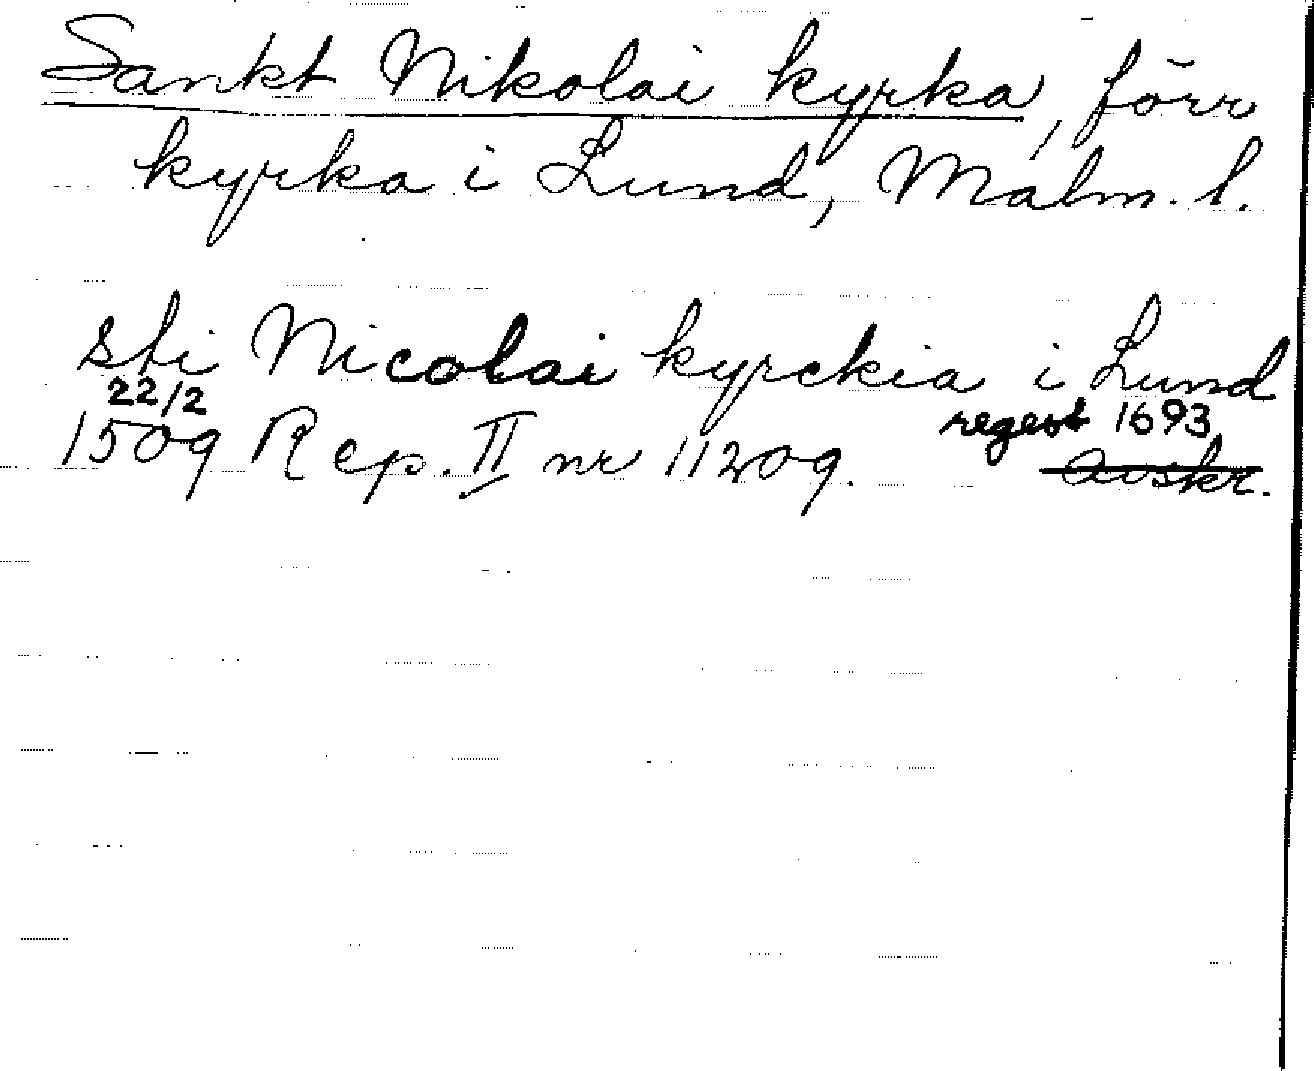 Sankt Nikolai kyrka, förr
kyrka i Lund, Malm. l.
sti Nicolai kyrckia i Lund
22/2
1509 Rep. II nr 11209. regest 1693
Avskr.